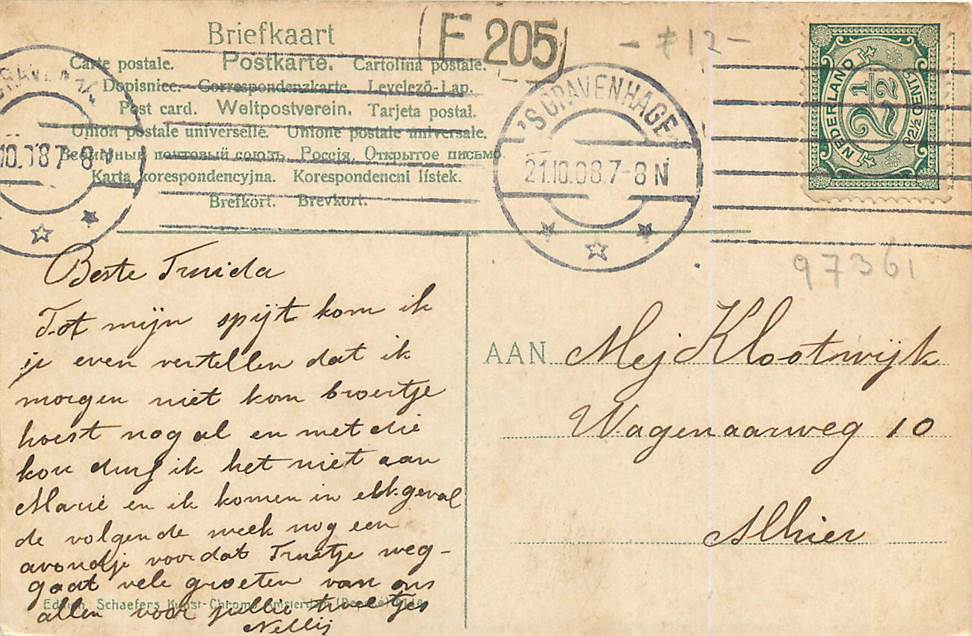 Briefkaart
Carte postale. Postkarte. Cartolina postale.
Dopisnice. Correspondenzkarte. Levelező-Lap.
Post card. Weltpostverein. Tarjeta postal.
Union postale universelle. Unione postale universale.
Всемирный почтовый союзъ. Россія. Открытое письмо.
Karta korespondencyjna. Korespondenční lístek.
Brefkort. Brevkort.
F 205
- f 12 -
'S GRAVENHAGE
21.10.08.7-8 N
10.08 7-8 N
NEDERLAND
2½
2½ CENT
97361
Beste Truida
Tot mijn spijt kom ik
je even vertellen dat ik
morgen niet kom broertje
hoest nog al en met die
kou durf ik het niet aan
Marie en ik komen in elk geval
de volgende week nog een
avondje voordat Truitje weg-
gaat vele groeten van ons
allen voor jullie tweetjes
Nellij
AAN Mej Klootwijk
Wagenaarweg 10
Alhier
Schaefers Kunst-Chromo, Amsterdam